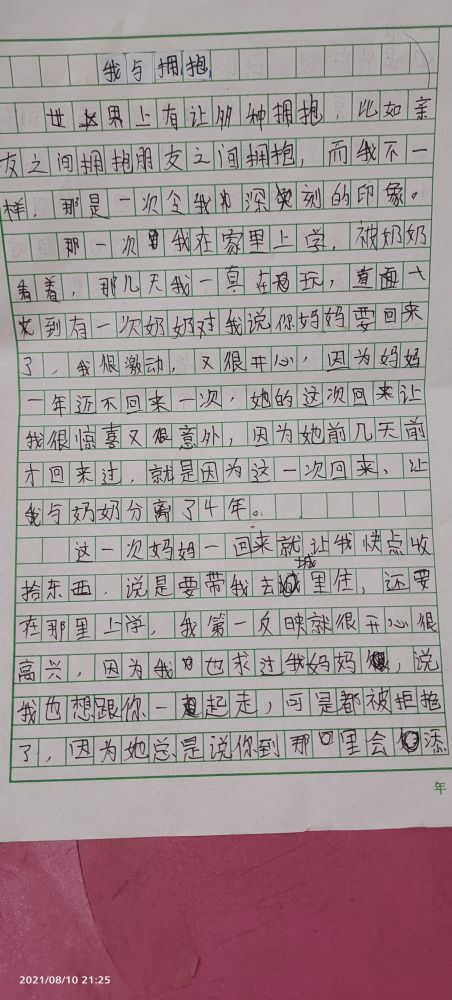 我与拥抱
世界上有让多种拥抱，比如亲
友之间拥抱朋友之间拥抱，而我不一
样，那是一次令我深刻的印象。
那一次我在家里上学，被奶奶
看着，那几天我一真在玩，直面
到有一次奶奶对我说你妈妈要回来
了，我很激动，又很开心，因为妈妈
一年迈不回来一次，她的这次回来让
我很惊喜又很意外，因为她前几天前
才回来过，就是因为这一次回来、让
我与奶奶分离了4年。
这一次妈妈一回来就让我快点收
拾东西，说是要带我去城里住，还要
在那里上学，我第一反映就很开心很
高兴，因为我也求过我妈妈，说
我也想跟你一起走，可是都被拒抱
了，因为她总是说你到那里会添
年
2021/08/10 21:25